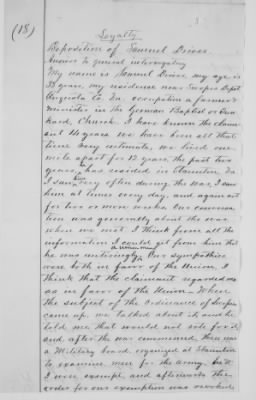 (18)
Loyalty
Deposition of Samuel Driver
Answer to general interrogatory
My name is Samuel Driver, my age is
38 years, my residence near Swopes Depot
Augusta Co. Va. occupation a farmer &
minister in the German Baptist or Dun
kard Church. I have known the claim
ant 14 years we have been all that
time very intimate, we lived one
mile apart for 12 years, the past two
years he has resided in Staunton, Va
I saw him very often during the war, I saw
him at times every day, and again not
for two or more weeks Our conversa
tion was generally about the war
when we met I think from all the
information I could get from him that
he was entirely a union man, Our sympathies
were both in favor of the Union, I
think that the claimant regarded me
as in favor of the Union. When
the subject of the Ordinance of Secession
came up, we talked about it and he
told me that would not vote for it,
and after the war commenced, there was
a Military board organized at Staunton
to examine men for the army, he &
I were exempt, and afterwards the
order for our exemption was revoked